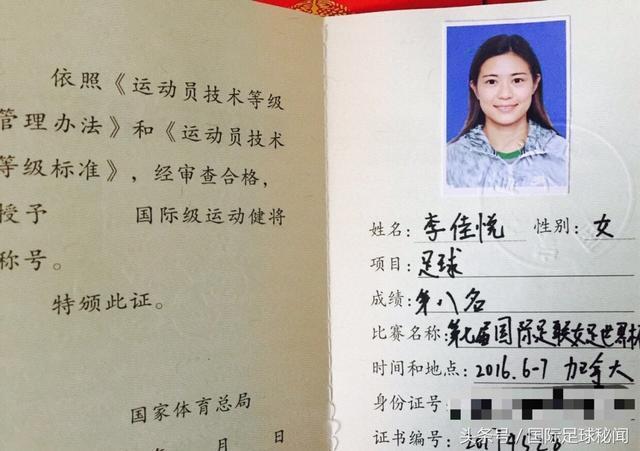 依照《运动员技术等级
管理办法》和《运动员技术
等级标准》，经审查合格，
授予 国际级运动健将
称号。
特颁此证。
国家体育总局
月 日
姓名：李佳悦 性别：女
项目：足球
成绩：第八名
比赛名称：第七届国际足联女足世界杯
时间和地点：2016.6-7 加拿大
身份证号
证书编号：
头条号／国际足球秘闻